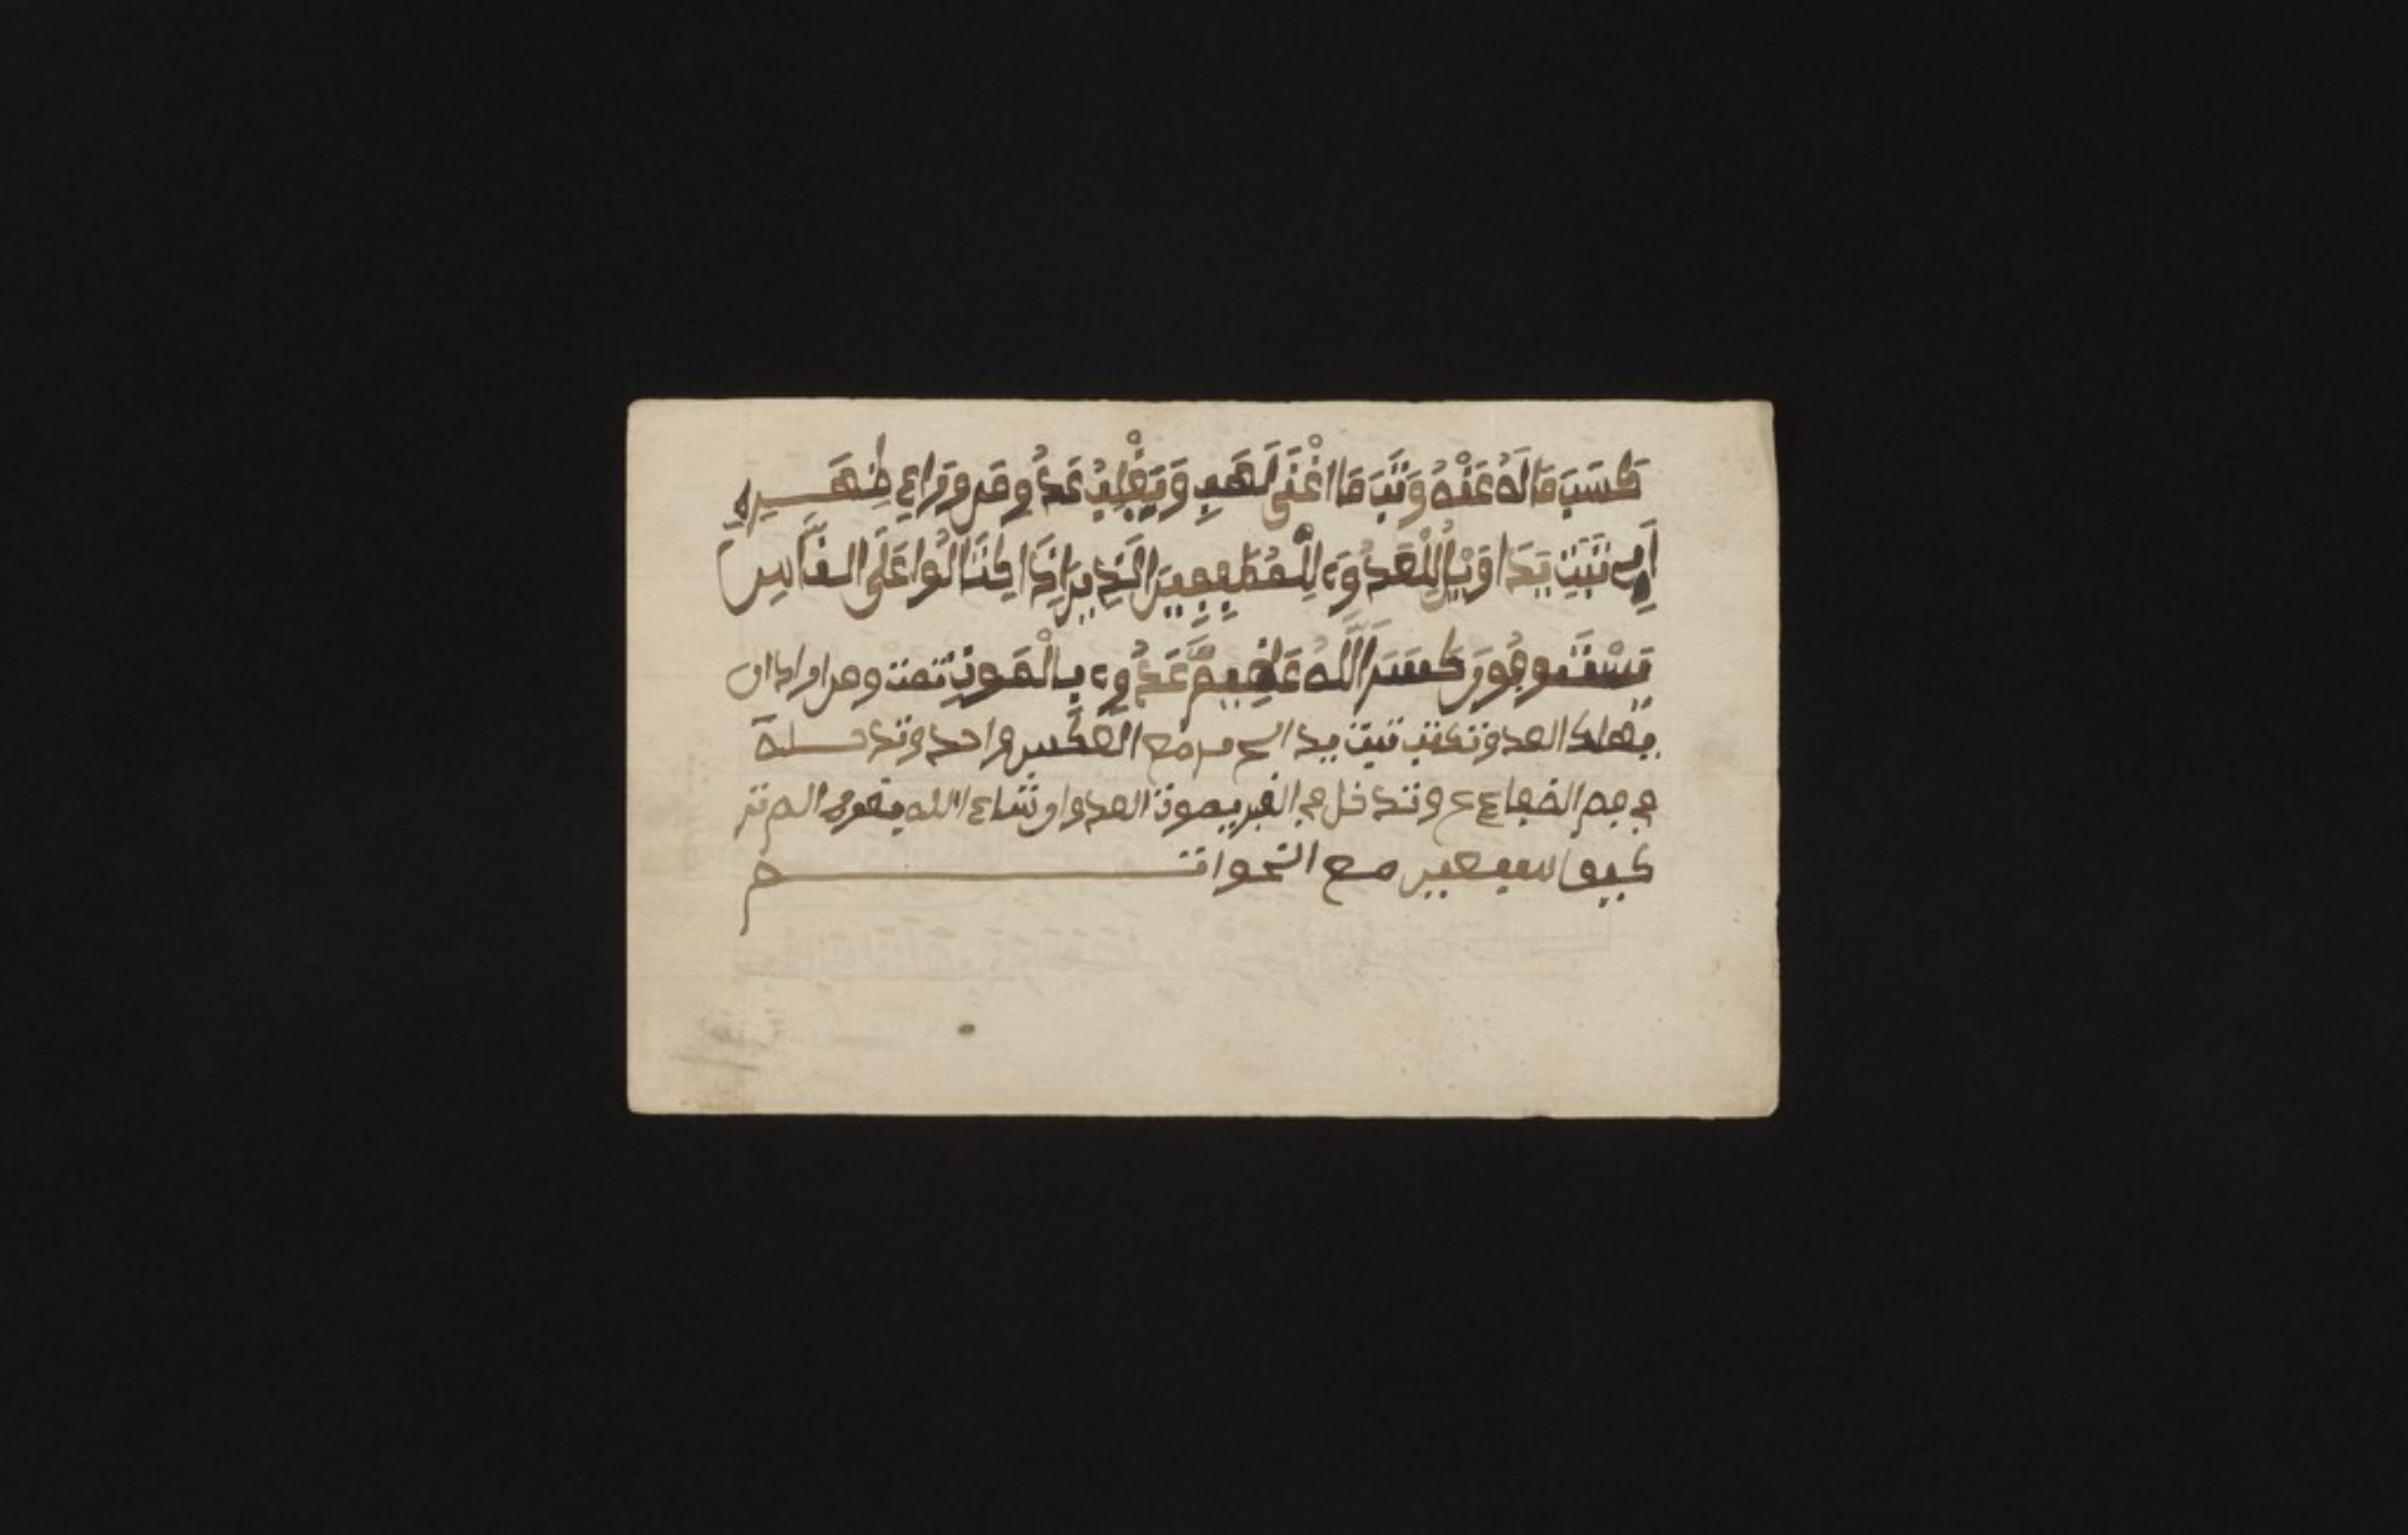 كَسَبَ مَا لَهُ عَنْهُ وَتَبَّ مَا اغْنَى لَهَبٍ وَيَغْلِبُ عَدُوِ وَمِن وَرَاءِ ظَهْرِهِ
تَبَّتْ يَدَا وَيْلٌ لِلْعَدُوِّ لِلْمُطَفِّفِينَ الَّذِينَ إِذَا اكْتَالُوا عَلَى النَّاسِ
يَسْتَوْفُونَ كَسَرَ اللَّهُ عَظِيمَ عَدُوِّ بِالْمَوْتِ تمت ومن اراد ان
يهلك العدو تكتب تبت يدا مع العكس واحد وتدخله
في فم الضفاع وتدخل في القبر يموت العدو ان شاء الله يقول الم تر
كيف سبعين مع الخواتم